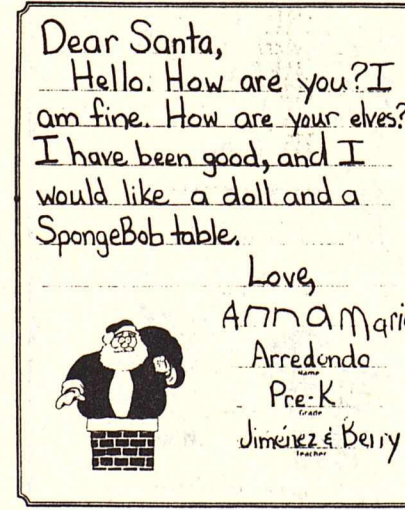 Dear Santa,
Hello. How are you? I
am fine. How are your elves?
I have been good, and I
would like a doll and a
SpongeBob table.
Love,
Anna Mari
Arredondo
Name
Pre-K
Grade
Jiménez & Berry
Teacher